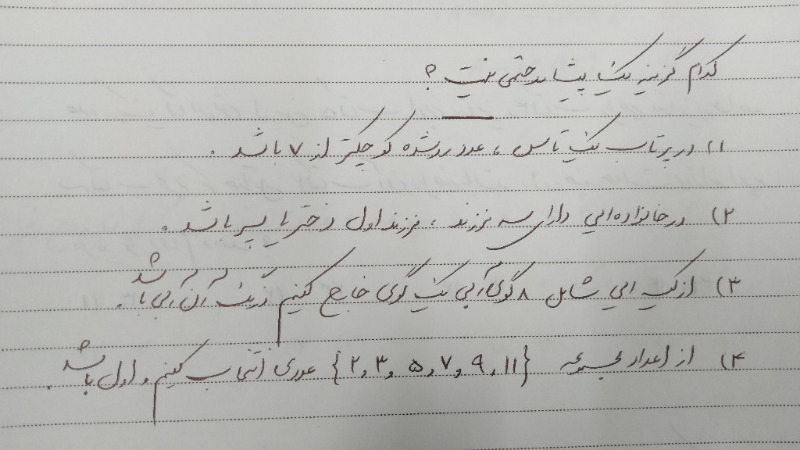 کدام گزینه یک پیشامد حتمی نیست ؟
۱) در پرتاب یک تاس ، عدد رو شده کوچکتر از ۷ باشد .
۲) در خانواده‌ایی دارای سه فرزند ، فرزند اول دختر یا پسر باشد .
۳) از کیسه‌ایی شامل ۸ گوی آبی یک گوی خارج کنیم و رنگ آن آبی باشد .
۴) از اعداد مجموعه {۲,۳,۵,۷,۹,۱۱} عددی انتخاب کنیم و اول باشد .